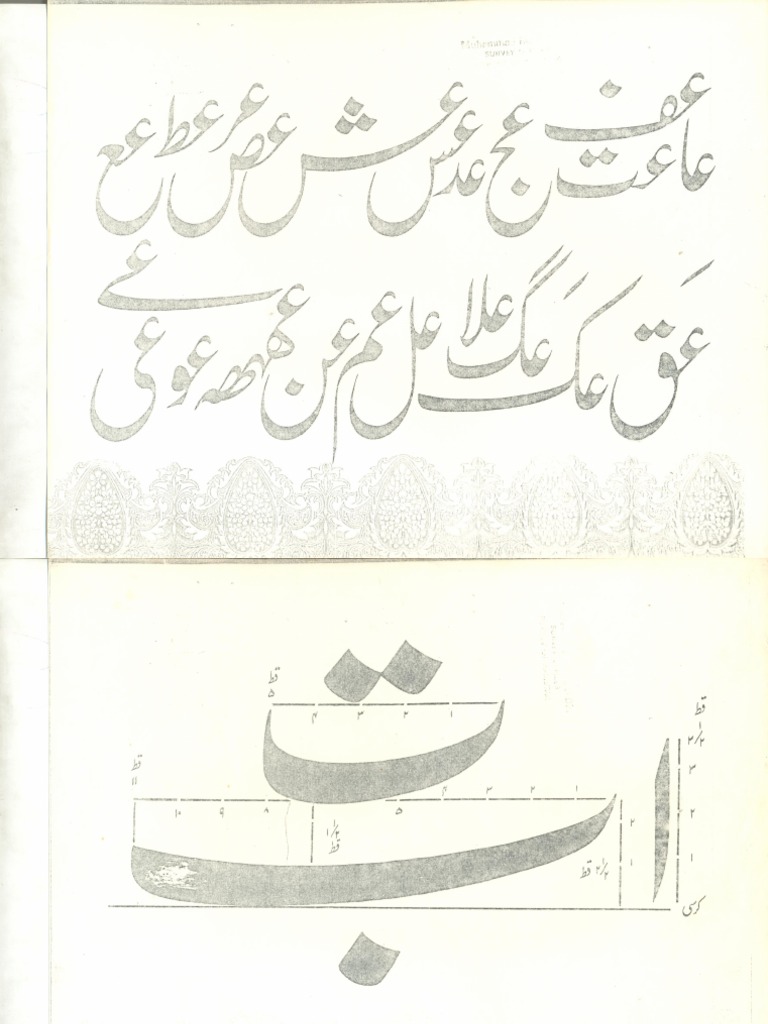 عا عف عت عج عد عس عش عص عر عط عع
عق عک عگ علا عل عم عن عو عی عے
ت
قط ۵
۱ ۲ ۳ ۴
قط
۳
۲
۱
کرسی
ا
قط ۱۱
۱ ۲ ۳ ۴ ۵ ۸ ۹ ۱۰
۱ ۱/۲ قط
۲
۱
۲ ۱/۲ قط
ب